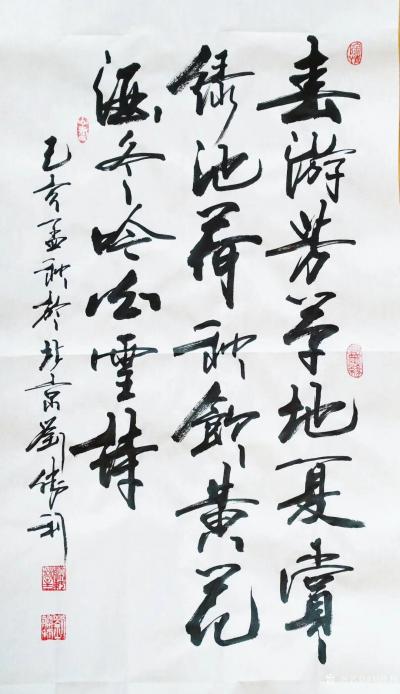 春游芳草地夏赏
绿池荷秋饮黄花
酒冬吟白雪诗
己亥孟秋于北京刘俊利